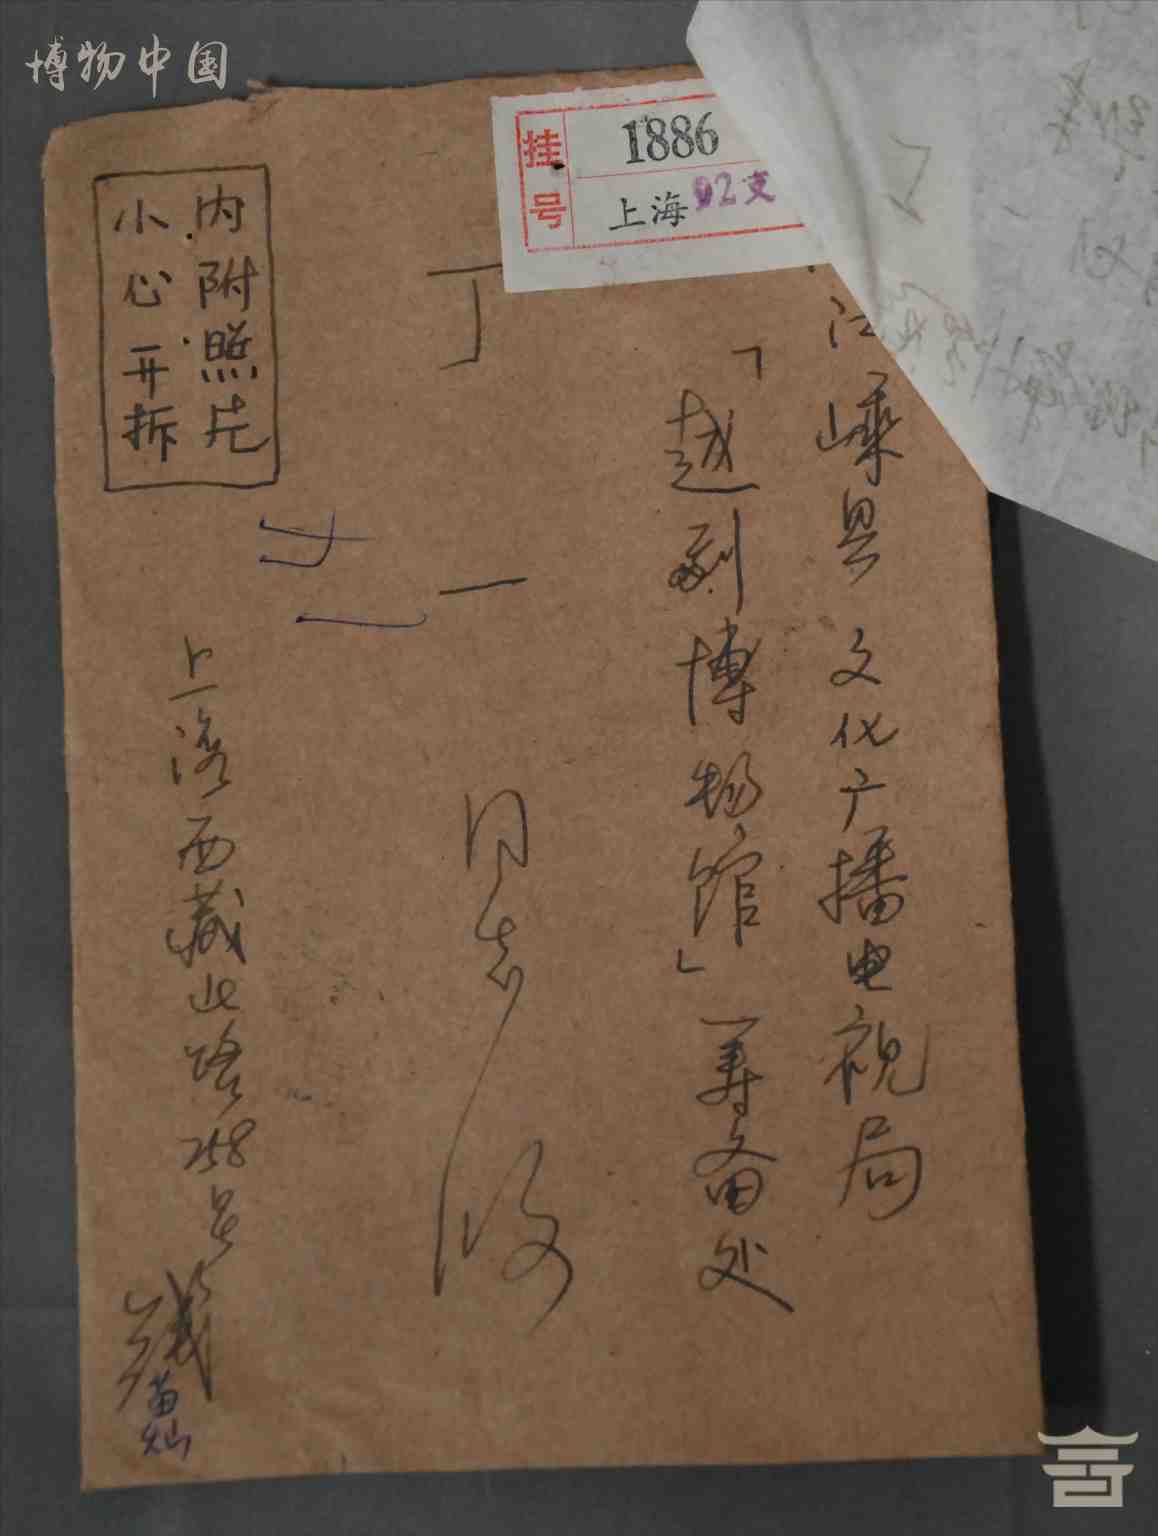 博物中国
挂号
1886
上海02支
江嵊县文化广播电视局
「越剧博物馆」筹备处
丁一同志收
内附照片
小心开拆
上海西藏北路258号
苗灿